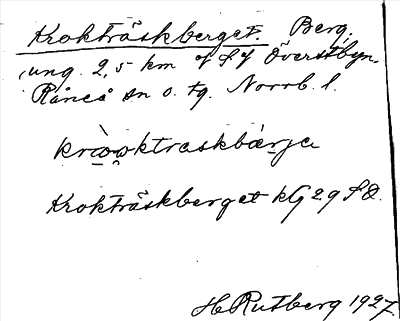 Krokträskberget. Berg,
ung. 2,5 km of S of Överstbyn.
Råneå sn o. tg. Norrb. l.
kròọktraskbærja
Krokträskberget kG 29 SO.
H Rutberg 1927.